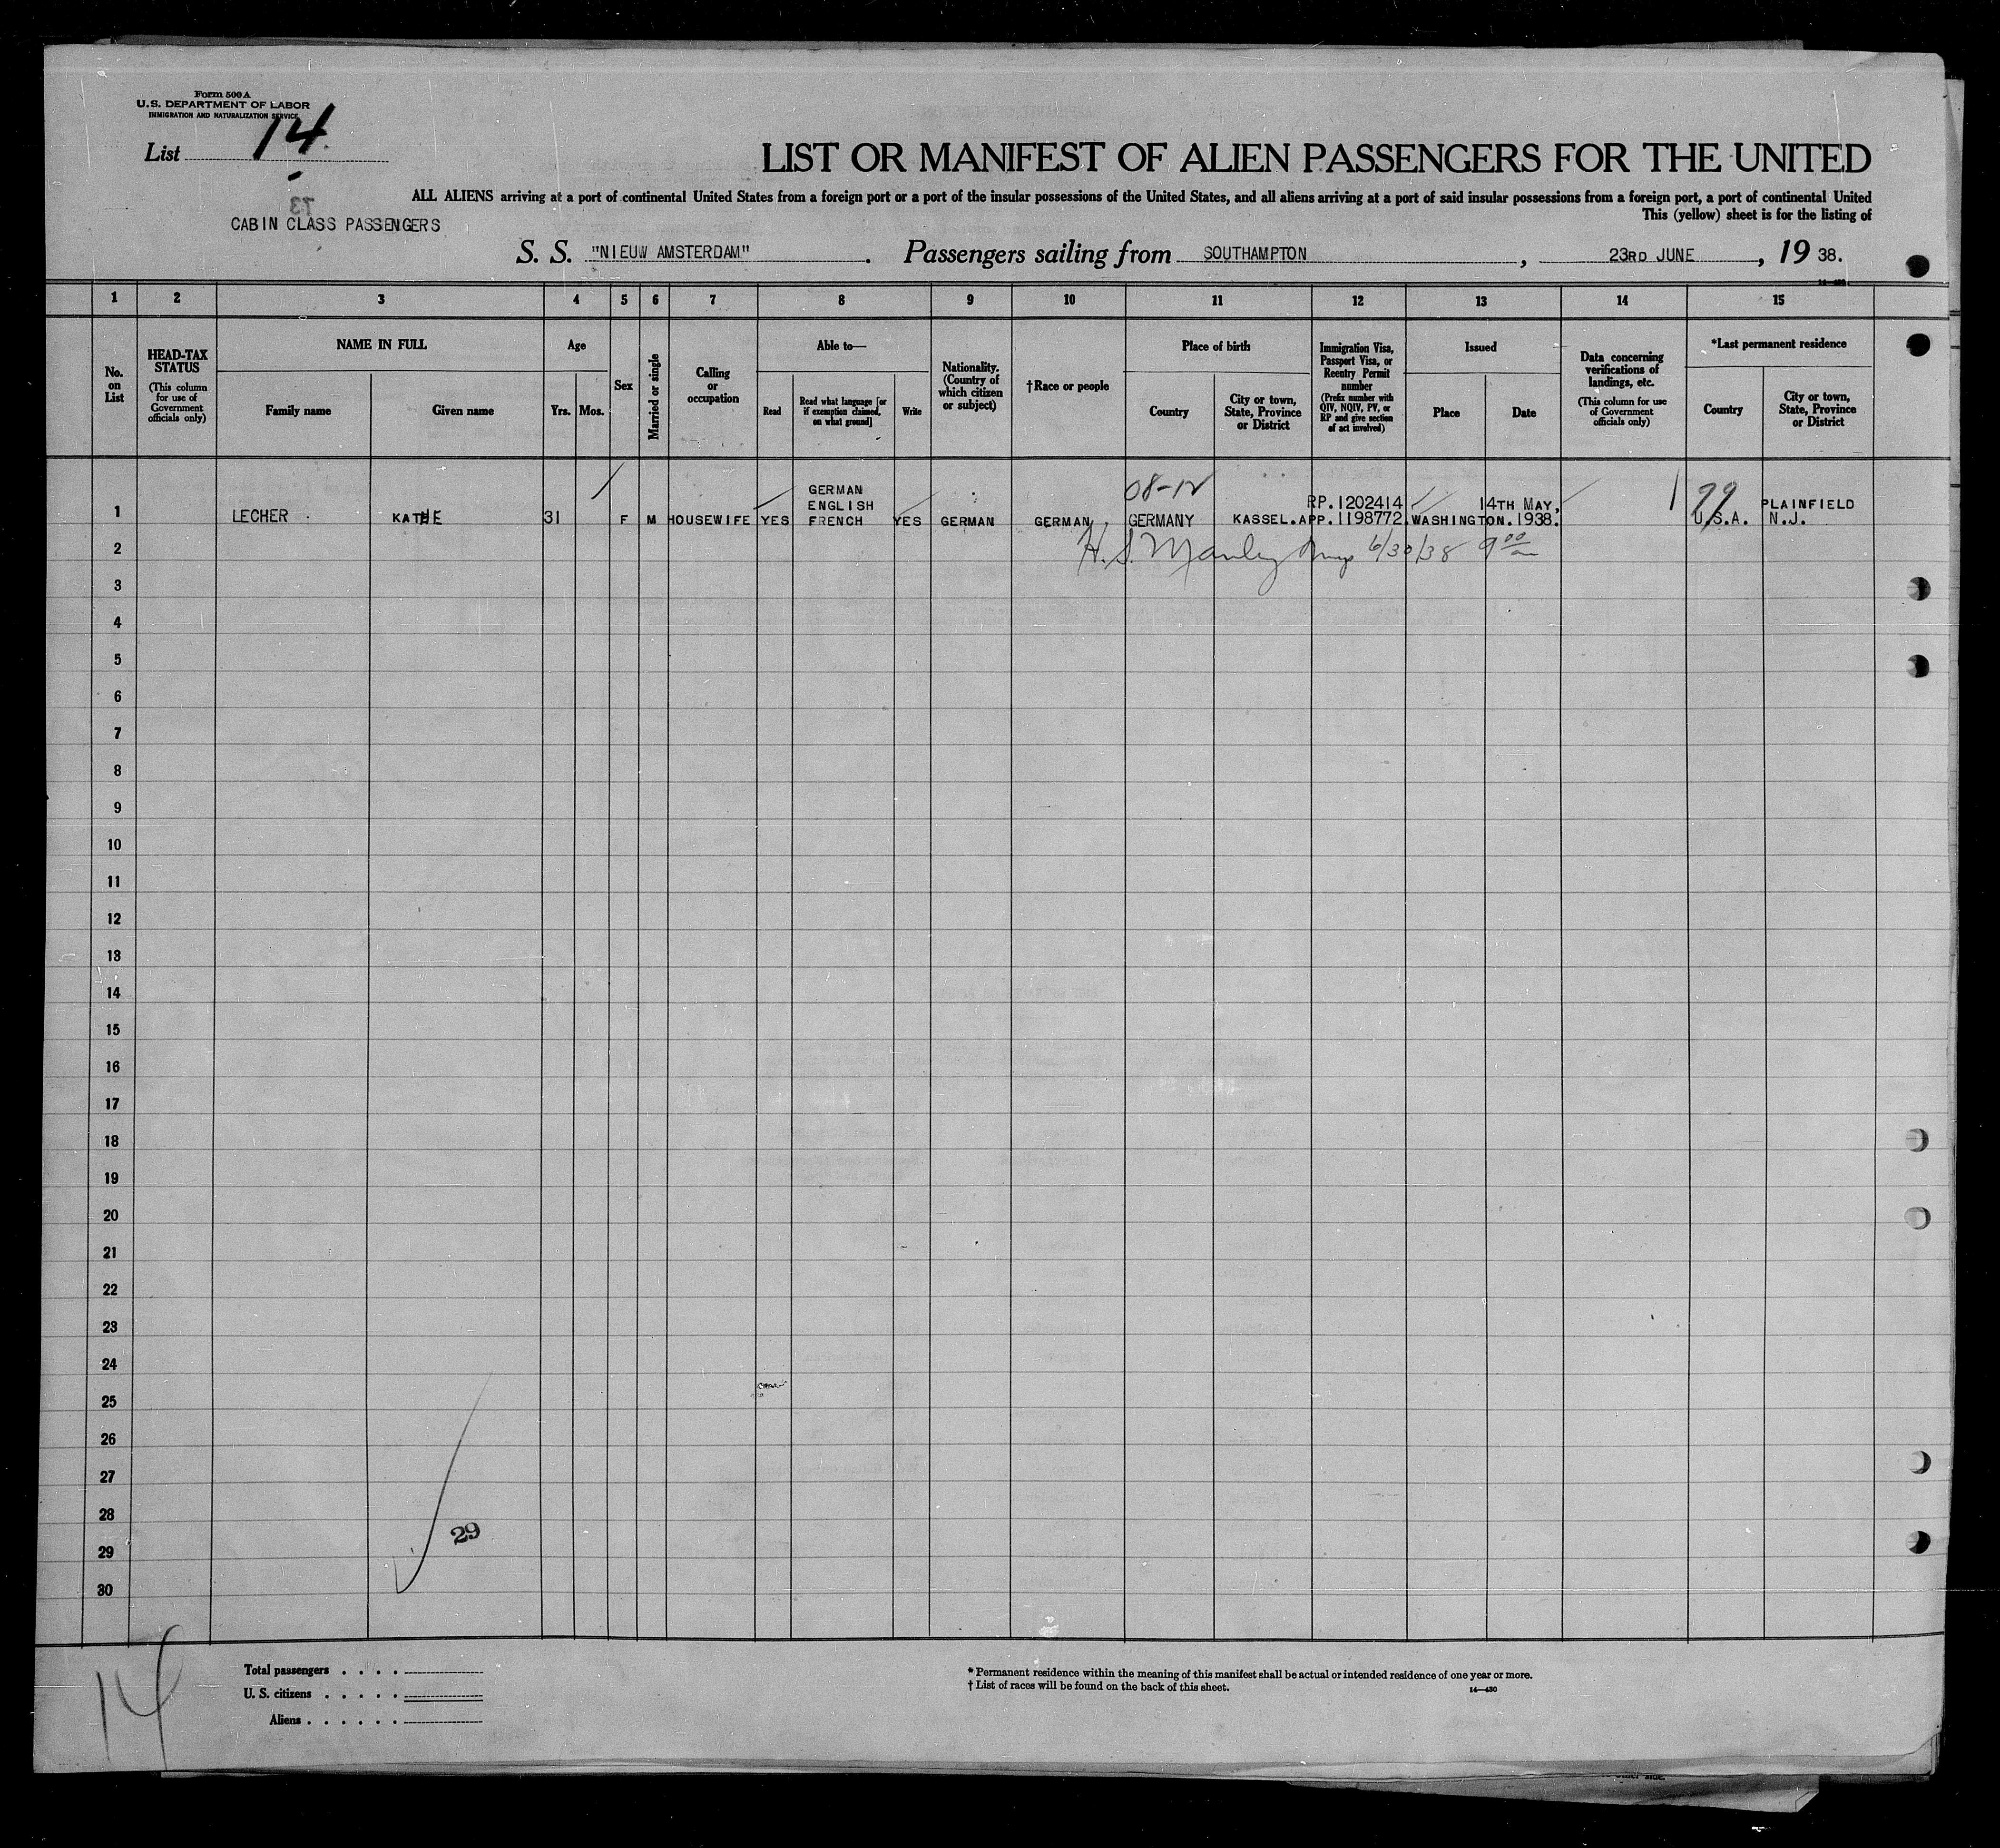 Form 500 A
U.S. DEPARTMENT OF LABOR
IMMIGRATION AND NATURALIZATION SERVICE
List 14
73
CABIN CLASS PASSENGERS
LIST OR MANIFEST OF ALIEN PASSENGERS FOR THE UNITED
ALL ALIENS arriving at a port of continental United States from a foreign port or a port of the insular possessions of the United States, and all aliens arriving at a port of said insular possessions from a foreign port, a port of continental United
This (yellow) sheet is for the listing of
S. S. "NIEUW AMSTERDAM". Passengers sailing from SOUTHAMPTON, 23RD JUNE, 19 38.
1 2 3 4 5 6 7 8 9 10 11 12 13 14 15
No. on List
HEAD-TAX STATUS (This column for use of Government officials only)
NAME IN FULL
Family name
Given name
Age
Yrs. Mos.
Sex
Married or single
Calling or occupation
Able to—
Read
Read what language [or if exemption claimed, on what ground]
Write
Nationality. (Country of which citizen or subject)
† Race or people
Place of birth
Country
City or town, State, Province or District
Immigration Visa, Passport Visa, or Reentry Permit number (Prefix number with QIV, NQIV, PV, or RP and give section of act involved)
Issued
Place
Date
Data concerning verifications of landings, etc. (This column for use of Government officials only)
*Last permanent residence
Country
City or town, State, Province or District
GERMAN 08-12
ENGLISH RP.1202414 14TH MAY, 99 PLAINFIELD
1 LECHER KATHE 31 F M HOUSEWIFE YES FRENCH YES GERMAN GERMAN GERMANY KASSEL. APP.1198772. WASHINGTON. 1938. U.S.A. N.J.
2 H. S. Manley 6/30/38 9 00
3
4
5
6
7
8
9
10
11
12
13
14
15
16
17
18
19
20
21
22
23
24
25
26
27
28
29
30
29
14
Total passengers . . . .
U. S. citizens . . . . .
Aliens . . . . . .
* Permanent residence within the meaning of this manifest shall be actual or intended residence of one year or more.
† List of races will be found on the back of this sheet.
14—430